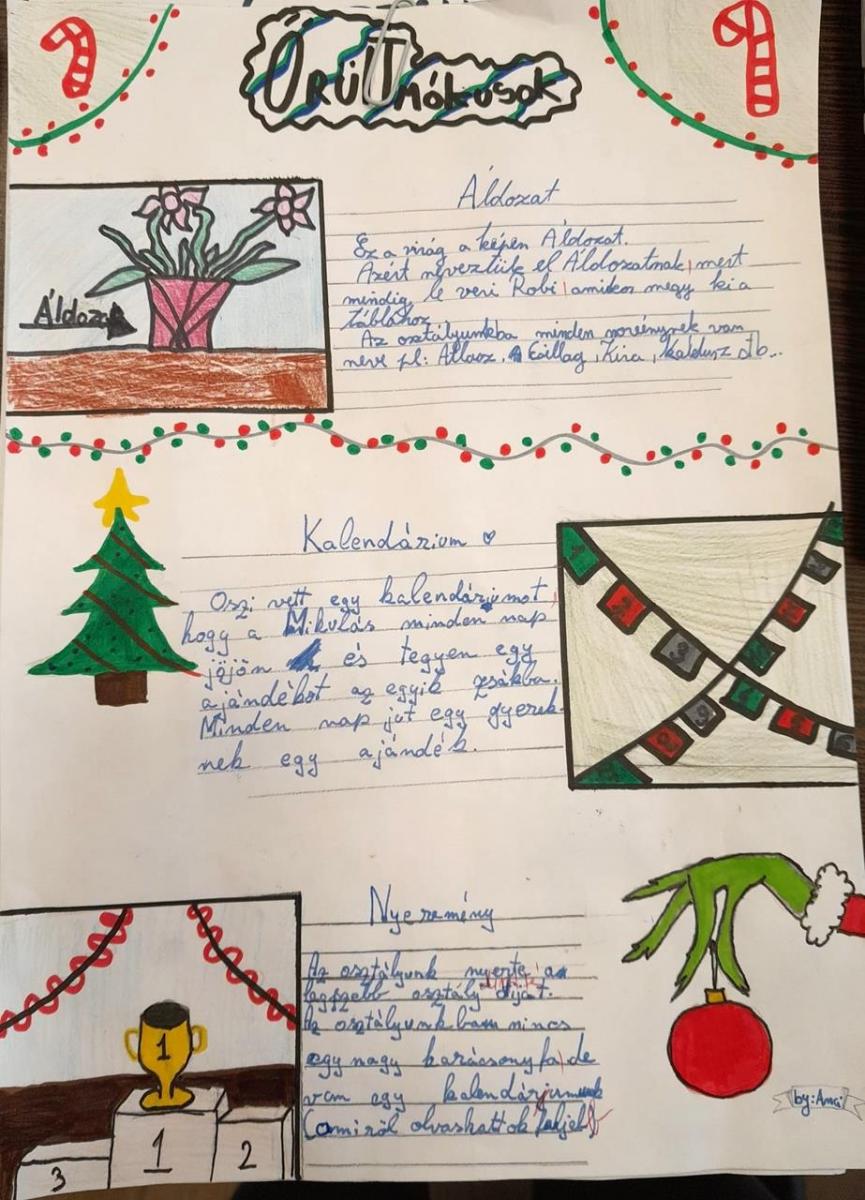 Őrült mókusok
Áldozat
Ez a virág a képen Áldozat.
Azért neveztük el Áldozatnak, mert
mindig le veri Robi, amikor megy ki a
táblához.
Az osztályunkba minden növénynek van
neve pl: Csillag, Kira, Kaktusz stb...
Áldozat
Kalendárium
Oszi vett egy kalendáriumot,
hogy a Mikulás minden nap
jöjön és tegyen egy
ajándékot az egyik zsákba.
Minden nap jut egy gyerek-
nek egy ajándék.
1
2
3
4
5
8
9
Nyeremény
Az osztályunk nyerte a
legszebb osztály díját.
Az osztályunkban nincs
egy nagy karácsonyfa, de
van egy kalendáriumunk
(amiről olvashattok feljebb)
1
3
1
2
by: Amci